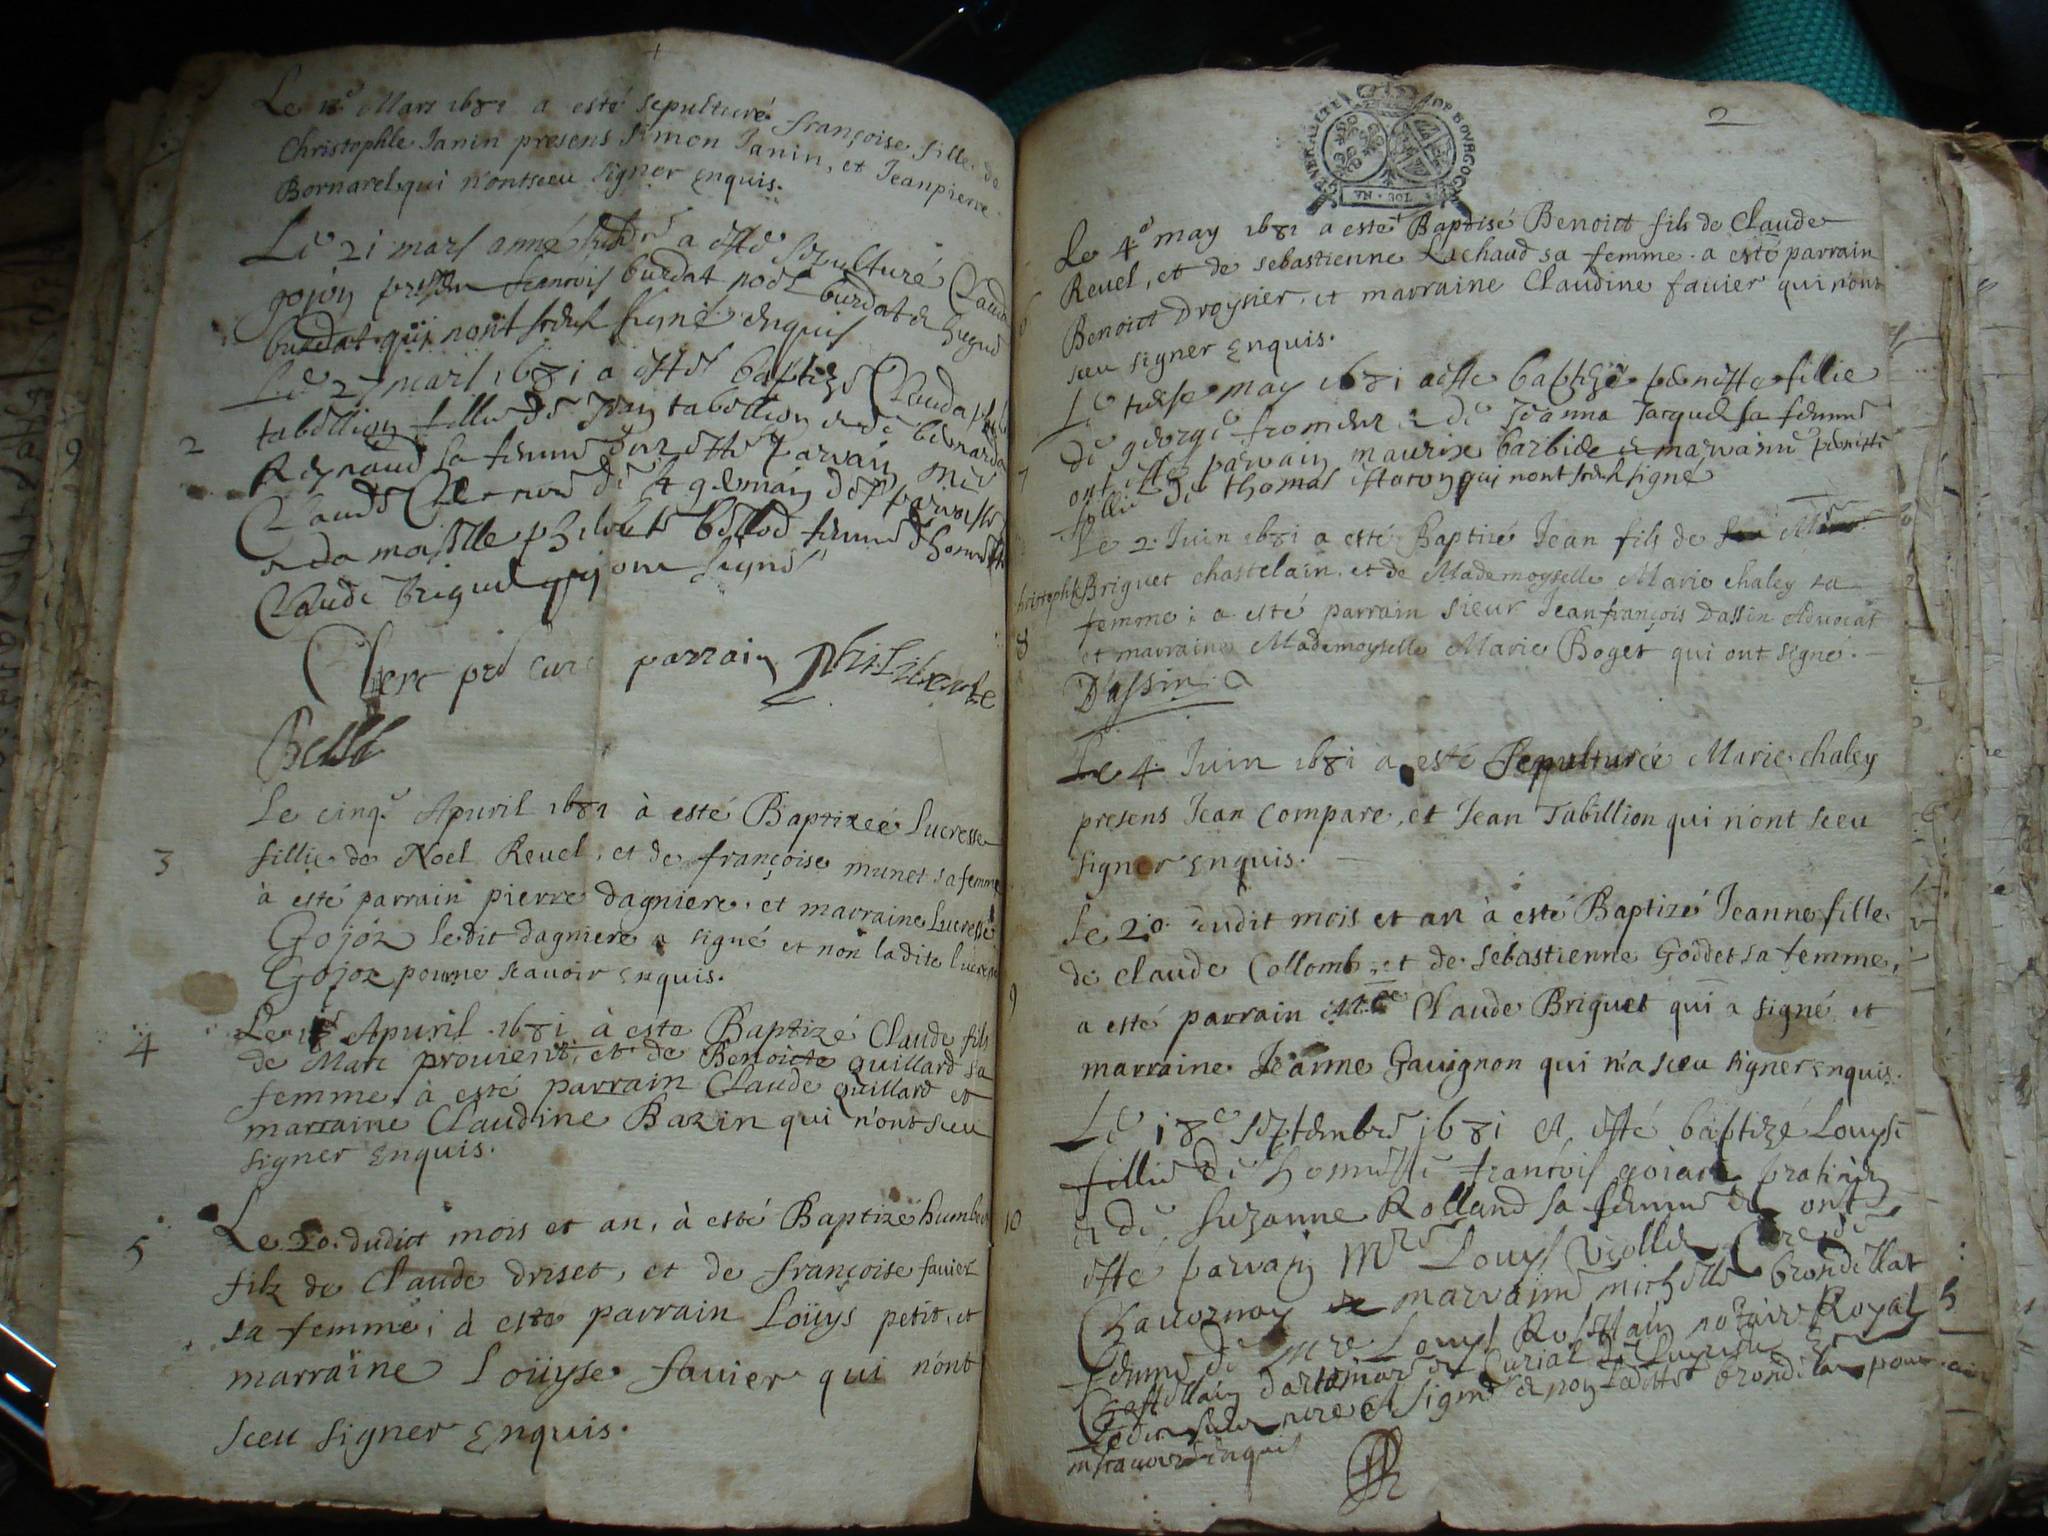 Le 18e Mars 1681 a esté sepulturé françoise fille de
Christophle Janin presens Simon Janin, et Jeanpierre
Bornarel qui n'ont sceu signer enquis.
Le 21 mars année a esté sepulturé Clauda
gojon francois burdat noel burdat et
burdat qui nont signé enquis
Le 27 mars 1681 a esté baptizé Clauda
2
tabellion fillie de Jean tabellion et de bernarda
Reynaud sa femme ont esté parvain
Claude Clerc curé de St germain
et da moiselle philiberte bellod femme d'honneste
Claude briguet qui ont signés
Clerc pbr curé parrain Philiberte
Belld
Le cinqe Apuril 1681 à esté Baptizeé lucresse
3
fillie de Noel Revel, et de françoise munet sa femme
à esté parrain pierre dagniere. et marraine lucresse
Gojoz ledit dagniere a signé et non ladite lucresse
Gojoz pour ne scavoir enquis.
Le Apuril 1681 à esté Baptizé Claude fils
4
de Marc prouient, et de Benoicte quillard sa
femme, à esté parrain Claude quillard et
marraine Claudine Bazin qui n'ont sceu
signer enquis.
Le 20. dudict mois et an, à esté Baptizé humbert
5
filz de Claude driset, et de françoise favier
sa femme, à esté parrain Loüys petit, et
marraine Loüyse favier qui n'ont
sceu signer enquis.
2
GENERALITE DE BOVRGOGNE
Le 4e may 1681 a esté Baptisé Benoict fils de Claude
Revel, et de sebastienne Lachaud sa femme. a esté parrain
6
Benoict droynier, et marraine Claudine favier qui n'ont
sceu signer enquis.
Le may 1681 a esté baptizé pernette fillie
de george froment et de Jeanna Jacquel sa femme
7
ont estez parvain maurix barbide et marvaine pernette
fillie de thomas qui nont signé
Le 2. Juin 1681 a esté Baptizé Jean fils de
christophle Briguet chastelain, et de Mademoyselle Marie chaley sa
femme; a esté parrain sieur Jeanfrançois Dassin Advocat
8
et marraine Mademoyselle Marie Boget qui ont signé.
Dassin
Le 4. Juin 1681 a esté Sepulturée Marie chaley
presens Jean Compare, et Jean Tabillion qui n'ont sceu
signer enquis.
Le 20. dudit mois et an à esté Baptizé Jeanne fille
de claude Collomb, et de sebastienne Goddet sa femme,
9
a esté parrain Claude Briguet qui a signé et
marraine Jeanne Gavignon qui n'a sceu signer enquis.
Le 18e septembre 1681 a esté baptizé Louyse
fillie de honneste francois goiard pratitien
10
et de Suzanne Rolland sa femme et ont
esté parvain Mre Louys Viollet Curé de
Chavornay et marvaine michelle brondellat
femme de mre Louys Rosstain notaire Royal
Chastellain dartemare et Curial de
a signé et non laditte brondellat pour
enquis